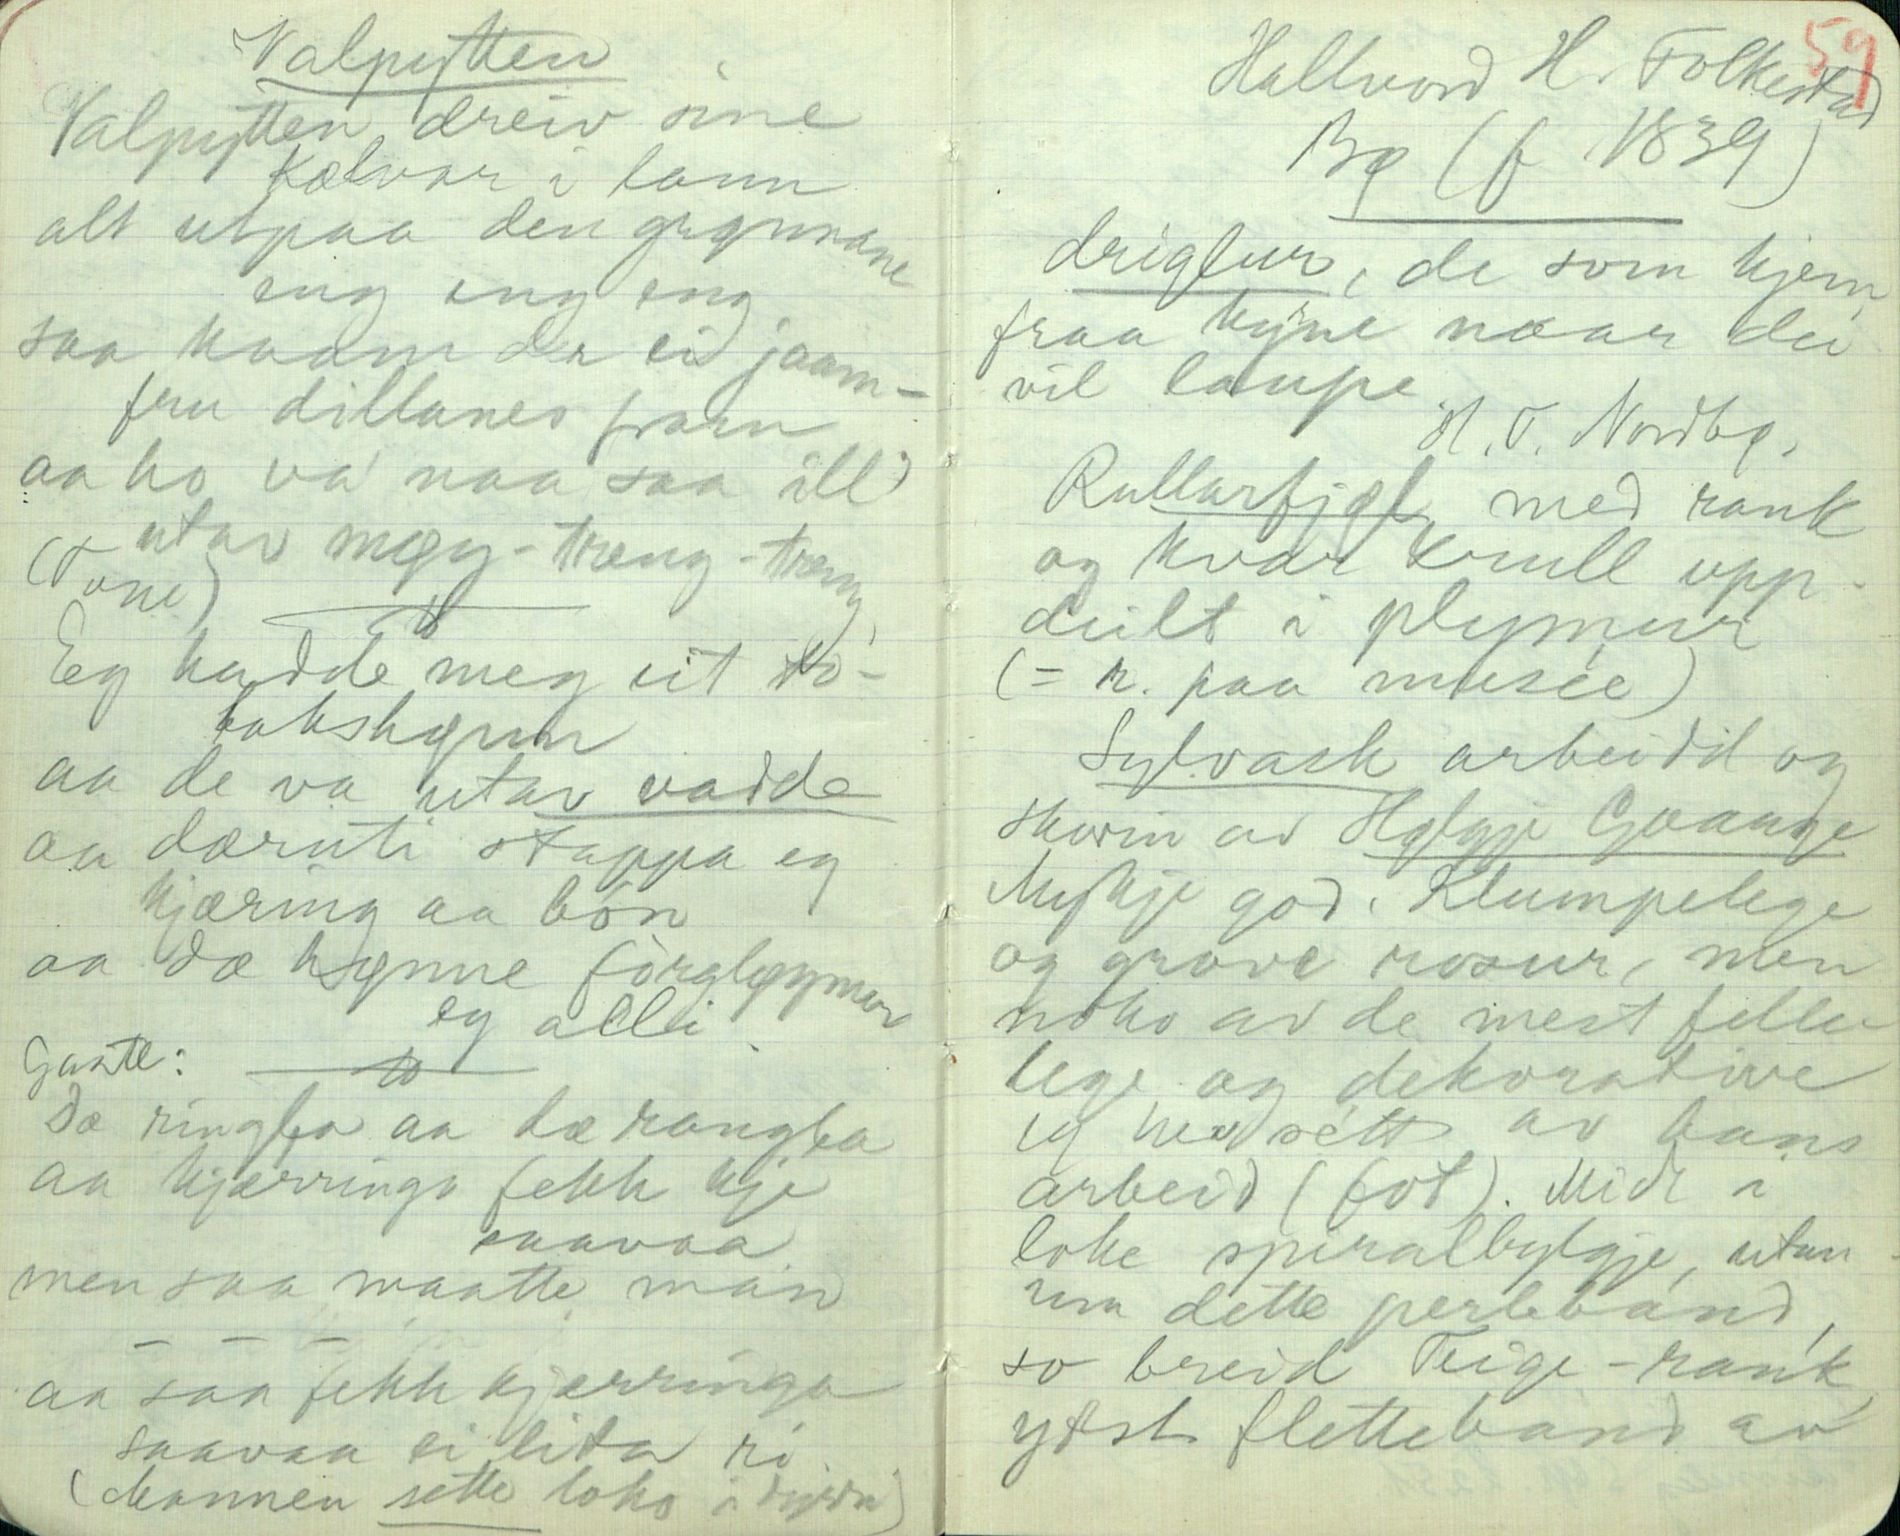 Valpytten
Valpytten dreiv sine
kælvar i lann
alt utpaa den grønnane
eng eng eng
saa kaam da ei jaam-
fru dillanes fram
aa ho va naa saa ill
utav møy-træng-træng
(Tone)
Eg hadde meg eit to-
bakshønn
aa de va utav vadde
aa dæruti stappa eg
kjæring aa bón
aa dæ hønne forgløymer
eg alli
Gunte:
Dæ ringla aa dæ rangla
aa kjærringa fekk kje
saavaa
men saa maatte man
– – –
aa saa fekk kjærringa
saavaa ei lita ri
(Mannen sette loko i dyrdi)
59
Hallvord H. Folkestad
Bø (f 1839)
driglur, de som kjem
fraa kyne naar dei
vil laupe.
H. T. Nordbø.
Rullarfjøl, med rank
og kvar krull upp-
deilt i plymur
(= r. paa musée)
Sylvask arbeidd og
skorin av Hølgje Graange
Mykje god. Klumpelege
og grove rosur, men
noko av de mest felle-
lege og dekorative
eg hev sétt av hans
arbeid (fot). Midt i
loke spiralbylgje, utan-
um dette perleband,
so breid Teige-rank,
ytst fletteband av